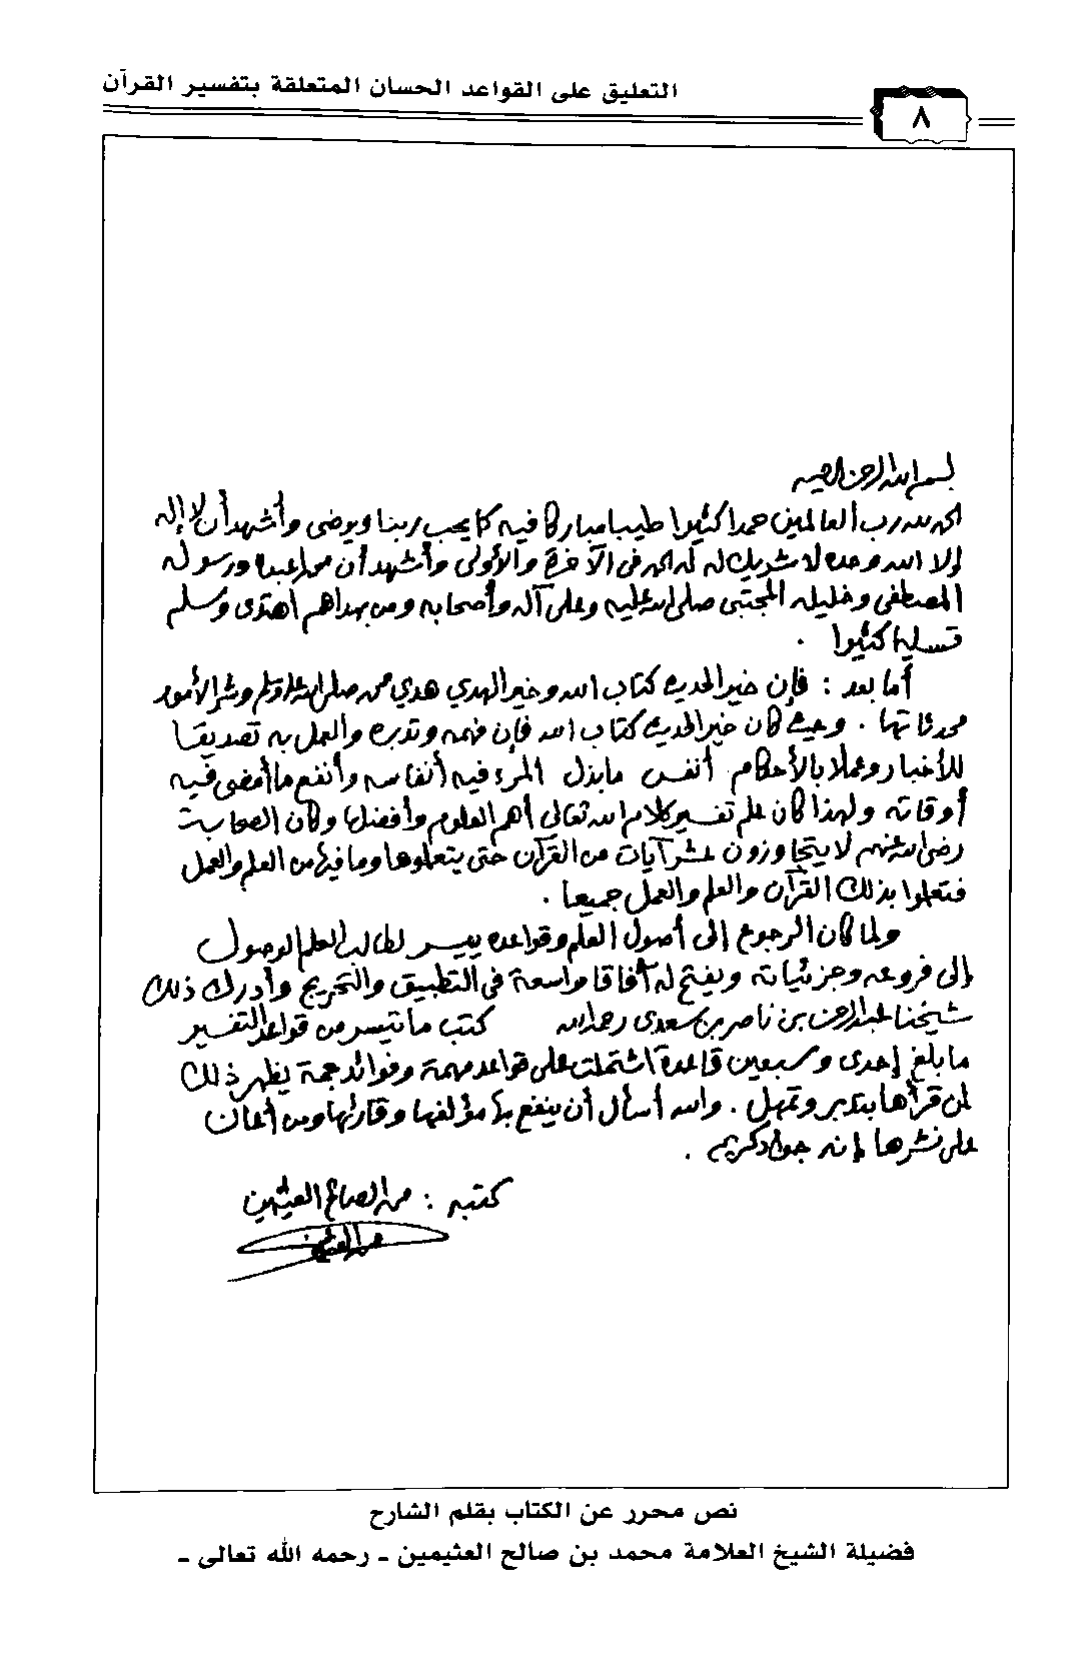 التعليق على القواعد الحسان المتعلقة بتفسير القرآن
٨
بسم الله الرحمن الرحيم
الحمد لله رب العالمين حمدا كثيرا طيبا مباركا فيه كما يحب ربنا ويرضى وأشهد أن لا إله
إلا الله وحده لا شريك له له الحمد في الآخرة والأولى وأشهد أن محمدا عبده ورسوله
المصطفى وخليله المجتبى صلى الله عليه وعلى آله وأصحابه ومن بهداهم اهتدى وسلم
تسليما كثيرا .
أما بعد : فإن خير الحديث كتاب الله وخير الهدي هدي محمد صلى الله عليه وسلم وشر الأمور
محدثاتها . وحيث كان خير الحديث كتاب الله فإن فهمه وتدبره والعمل به تصديقا
للأخبار وعملا بالأحكام أنفس ما بذل المرء فيه أنفاسه وأنفع ما أمضى فيه
أوقاته ولهذا كان علم تفسير كلام الله تعالى أهم العلوم وأفضلها وكان الصحابة
رضي الله عنهم لا يتجاوزون عشر آيات من القرآن حتى يتعلموها وما فيها من العلم والعمل
فتعلموا بذلك القرآن والعلم والعمل جميعا .
ولما كان الرجوع إلى أصول العلم وقواعده ييسر لطالب العلم الوصول
إلى فروعه وجزئياته ويفتح له آفاقا واسعة في التطبيق والتخريج وأدرك ذلك
شيخنا عبد الرحمن بن ناصر بن سعدي رحمه الله كتب ما تيسر من قواعد التفسير
ما بلغ إحدى وسبعين قاعدة اشتملت على قواعد مهمة وفوائد جمة يظهر ذلك
لمن قرأها بتدبر وتمهل . والله أسأل أن ينفع بها مؤلفها وقارئها ومن أعان
على نشرها إنه جواد كريم .
كتبه : محمد الصالح العثيمين
محمد العثيمين
نص محرر عن الكتاب بقلم الشارح
فضيلة الشيخ العلامة محمد بن صالح العثيمين ـ رحمه الله تعالى ـ